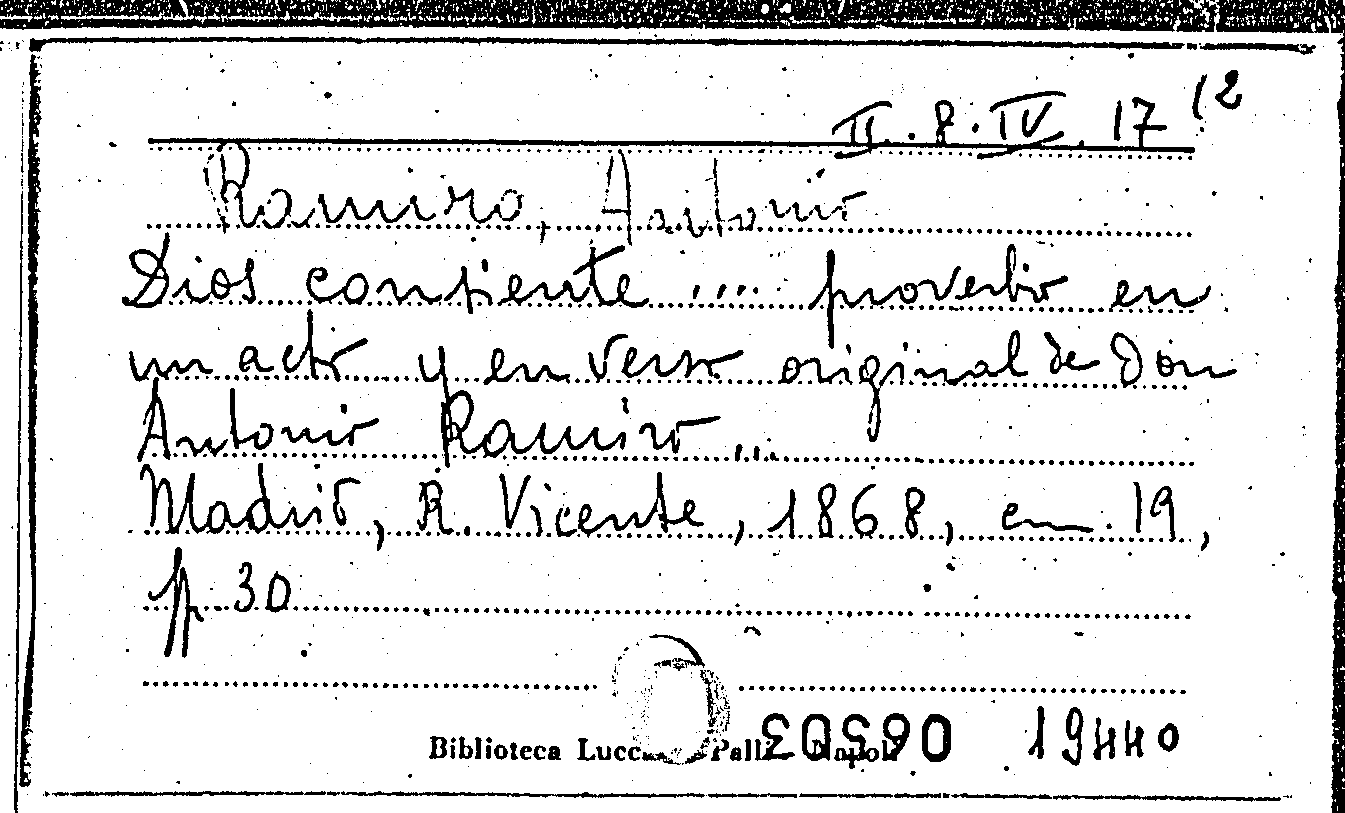 II.8.IV.17 12
Ramiro, Antonio
Dios consiente .... proverbio en
un acto y en verso original de Don
Antonio Ramiro ...
Madrid, R. Vicente, 1868, cm. 19,
pp. 30
Biblioteca Lucchesi Palli - Napoli 19440